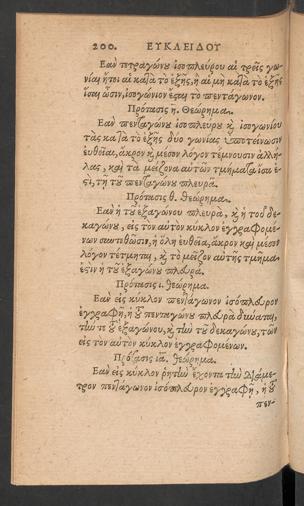 200. ΕΥΚΛΕΙΔΟΥ
Εὰν πετραγώνου ἰσοπλεύρου αἱ τρεῖς γω-
νίαι, ἤτοι αἱ κατὰ τὸ ἑξῆς, ἢ αἱ μὴ κατὰ τὸ ἑξῆς
ἴσαι ὦσιν, ἰσογώνιον ἔσται τὸ πεντάγωνον.
Πρότασις η. Θεώρημα.
Εὰν πενταγώνου ἰσοπλεύρου κ ἰσογωνίου
τὰς κατὰ τὸ ἑξῆς δύο γωνίας ὑποτείνωσιν
εὐθεῖαι, ἄκρον κ μέσον λόγον τέμνουσιν ἀλλή-
λας, καὶ τὰ μείζονα αὐτῶν τμήματα ἴσα ἐ-
στι, τῇ τοῦ πενταγώνου πλευρᾷ.
Πρότασις θ. θεώρημα.
Εὰν ἡ τοῦ ἑξαγώνου πλευρὰ, κ ἡ τοῦ δε-
καγώνου, εἰς τὸν αὐτὸν κύκλον ἐγγραφομέ-
νων συντεθῶσιν, ἡ ὅλη εὐθεῖα, ἄκρον καὶ μέσον
λόγον τέτμηται, κ τὸ μεῖζον αὐτῆς τμῆμα
ἐστιν ἡ τοῦ ἑξαγώνου πλευρά.
Πρότασις ι. θεώρημα.
Εὰν εἰς κύκλον πεντάγωνον ἰσόπλευρον
ἐγγραφῇ, ἡ τοῦ πενταγώνου πλευρὰ δύναται,
τήν τε τοῦ ἑξαγώνου, κ τὴν τοῦ δεκαγώνου, τῶν
εἰς τὸν αὐτὸν κύκλον ἐγγραφομένων.
Πρότασις ια. θεώρημα.
Εὰν εἰς κύκλον ῥητὴν ἔχοντα τὴν διάμε-
τρον πεντάγωνον ἰσόπλευρον ἐγγραφῇ, ἡ τοῦ
πεν-